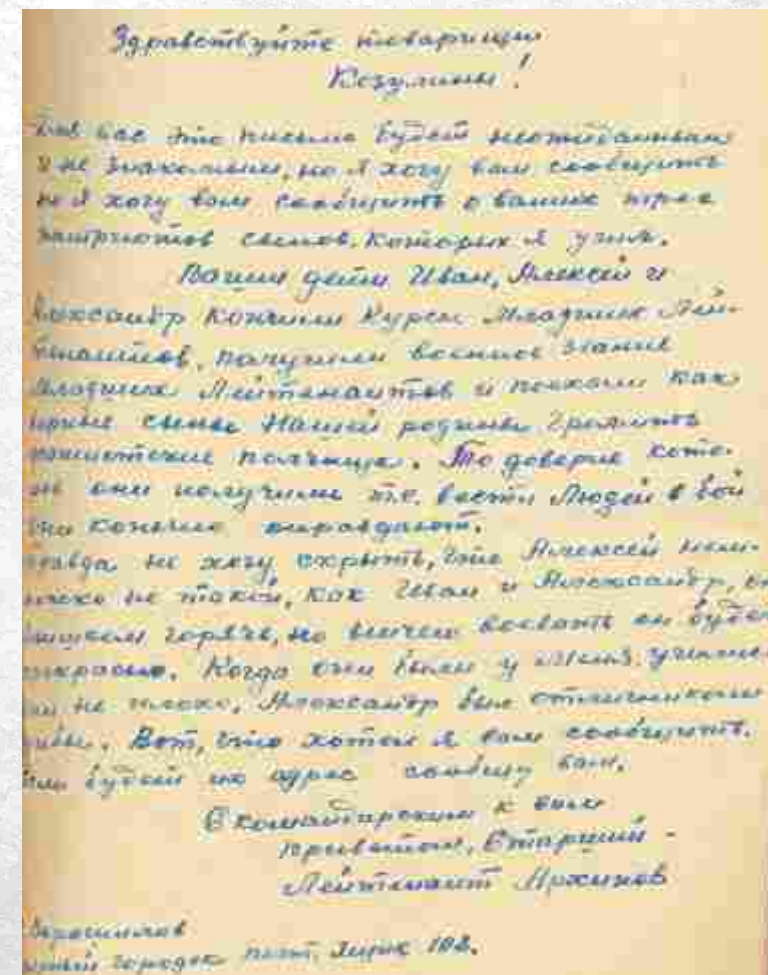 Здравствуйте товарищи
Козулины!
Для вас это письмо будет неожиданным
и не знакомым, но я хочу вам сообщить
но я хочу вам сообщить о ваших трех
патриотов сынов, которых я учил.
Ваши дети Иван, Алексей и
Александр кончили курсы Младших Лей-
тенантов, получили военное звание
младших Лейтенантов и поехали как
верные сыны Нашей родины громить
фашистские полчища. То доверие кото-
они получили т.е. вести Людей в бой
они конечно оправдают.
Правда не хочу скрыть, что Алексей нем-
не такой, как Иван и Александр, он
слишком горяч, но воевать он будет
прекрасно. Когда они были у меня учились
они не плохо, Александр был отличником
Вот, что хотел я вам сообщить.
Если будет их адрес сообщу вам.
С командирским к вам
приветом, Старший -
Лейтенант Архипов
городок почт. ящик 102.